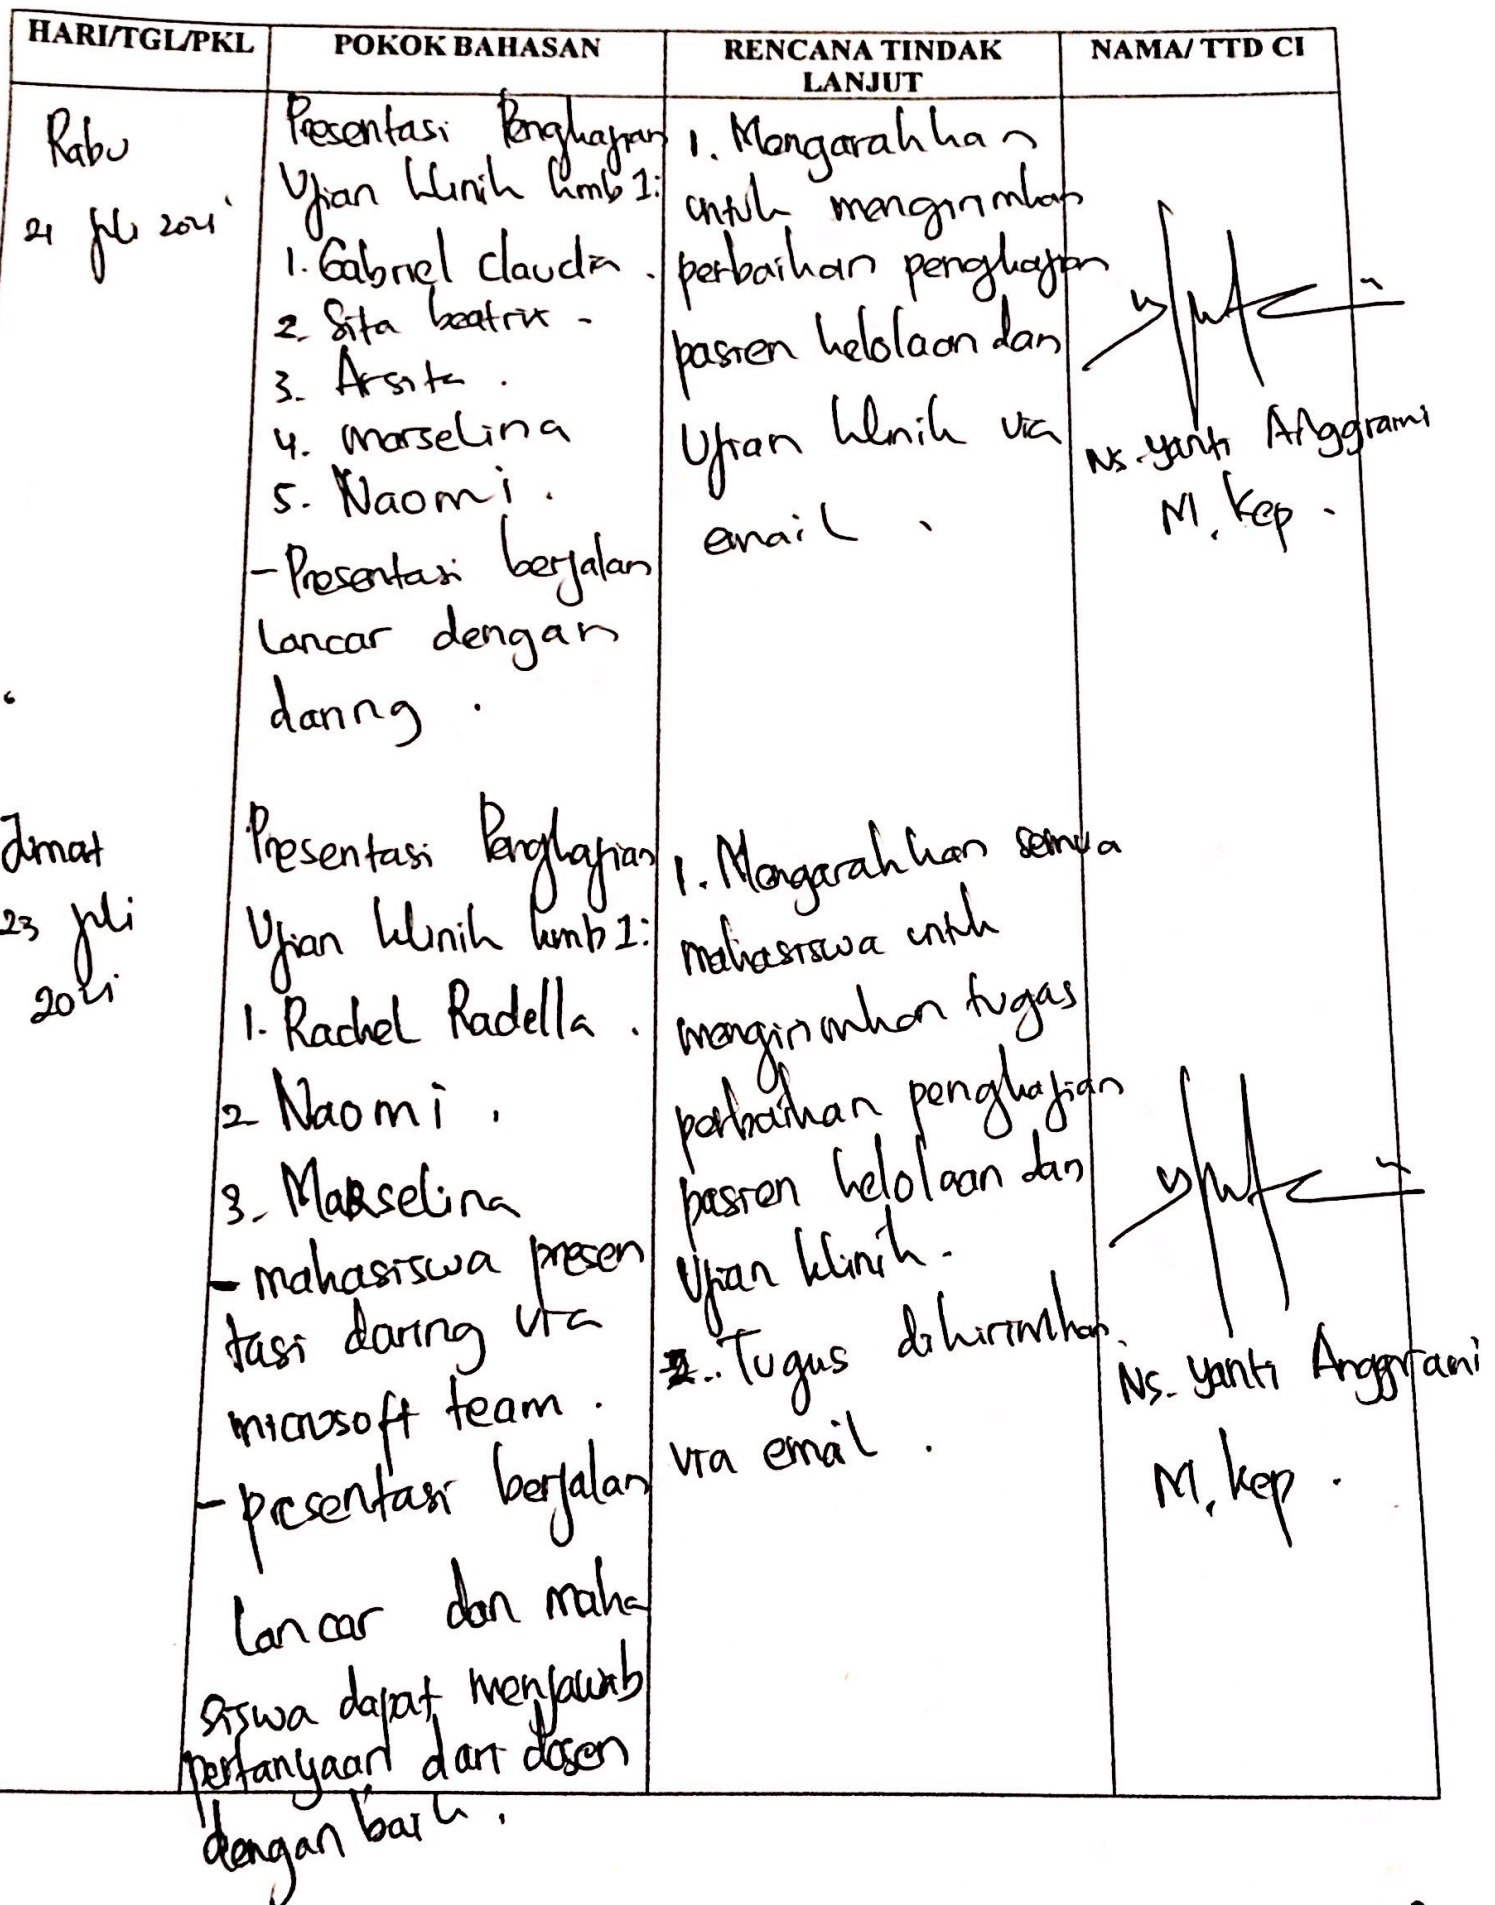 HARI/TGL/PKL
POKOK BAHASAN
RENCANA TINDAK
LANJUT
NAMA/ TTD CI
Rabu
21 Juli 2021
Presentasi Pengkajian
Ujian klinik kmb 1:
1. Gabriel Claudia.
2. Sita beatrix -
3. Arsita.
4. Marselina
5. Naomi.
- Presentasi berjalan
lancar dengan
daring.
1. Mengarahkan
untuk mengirimkan
perbaikan pengkajian
pasien kelolaan dan
Ujian klinik via
email.
Ns. Yanti Anggraini
M. Kep.
Jumat
23 Juli
2021
Presentasi Pengkajian
Ujian klinik kmb 1:
1. Rachel Radella.
2 Naomi.
3. Marselina
- mahasiswa presen
tasi daring via
microsoft team.
- presentasi berjalan
lancar dan maha
siswa dapat menjawab
pertanyaan dari dosen
dengan baik.
1. Mengarahkan semua
mahasiswa untuk
mengirimkan tugas
perbaikan pengkajian
pasien kelolaan dan
Ujian klinik.
2. Tugas dikirimkan
via email.
Ns. Yanti Anggraini
M. Kep.